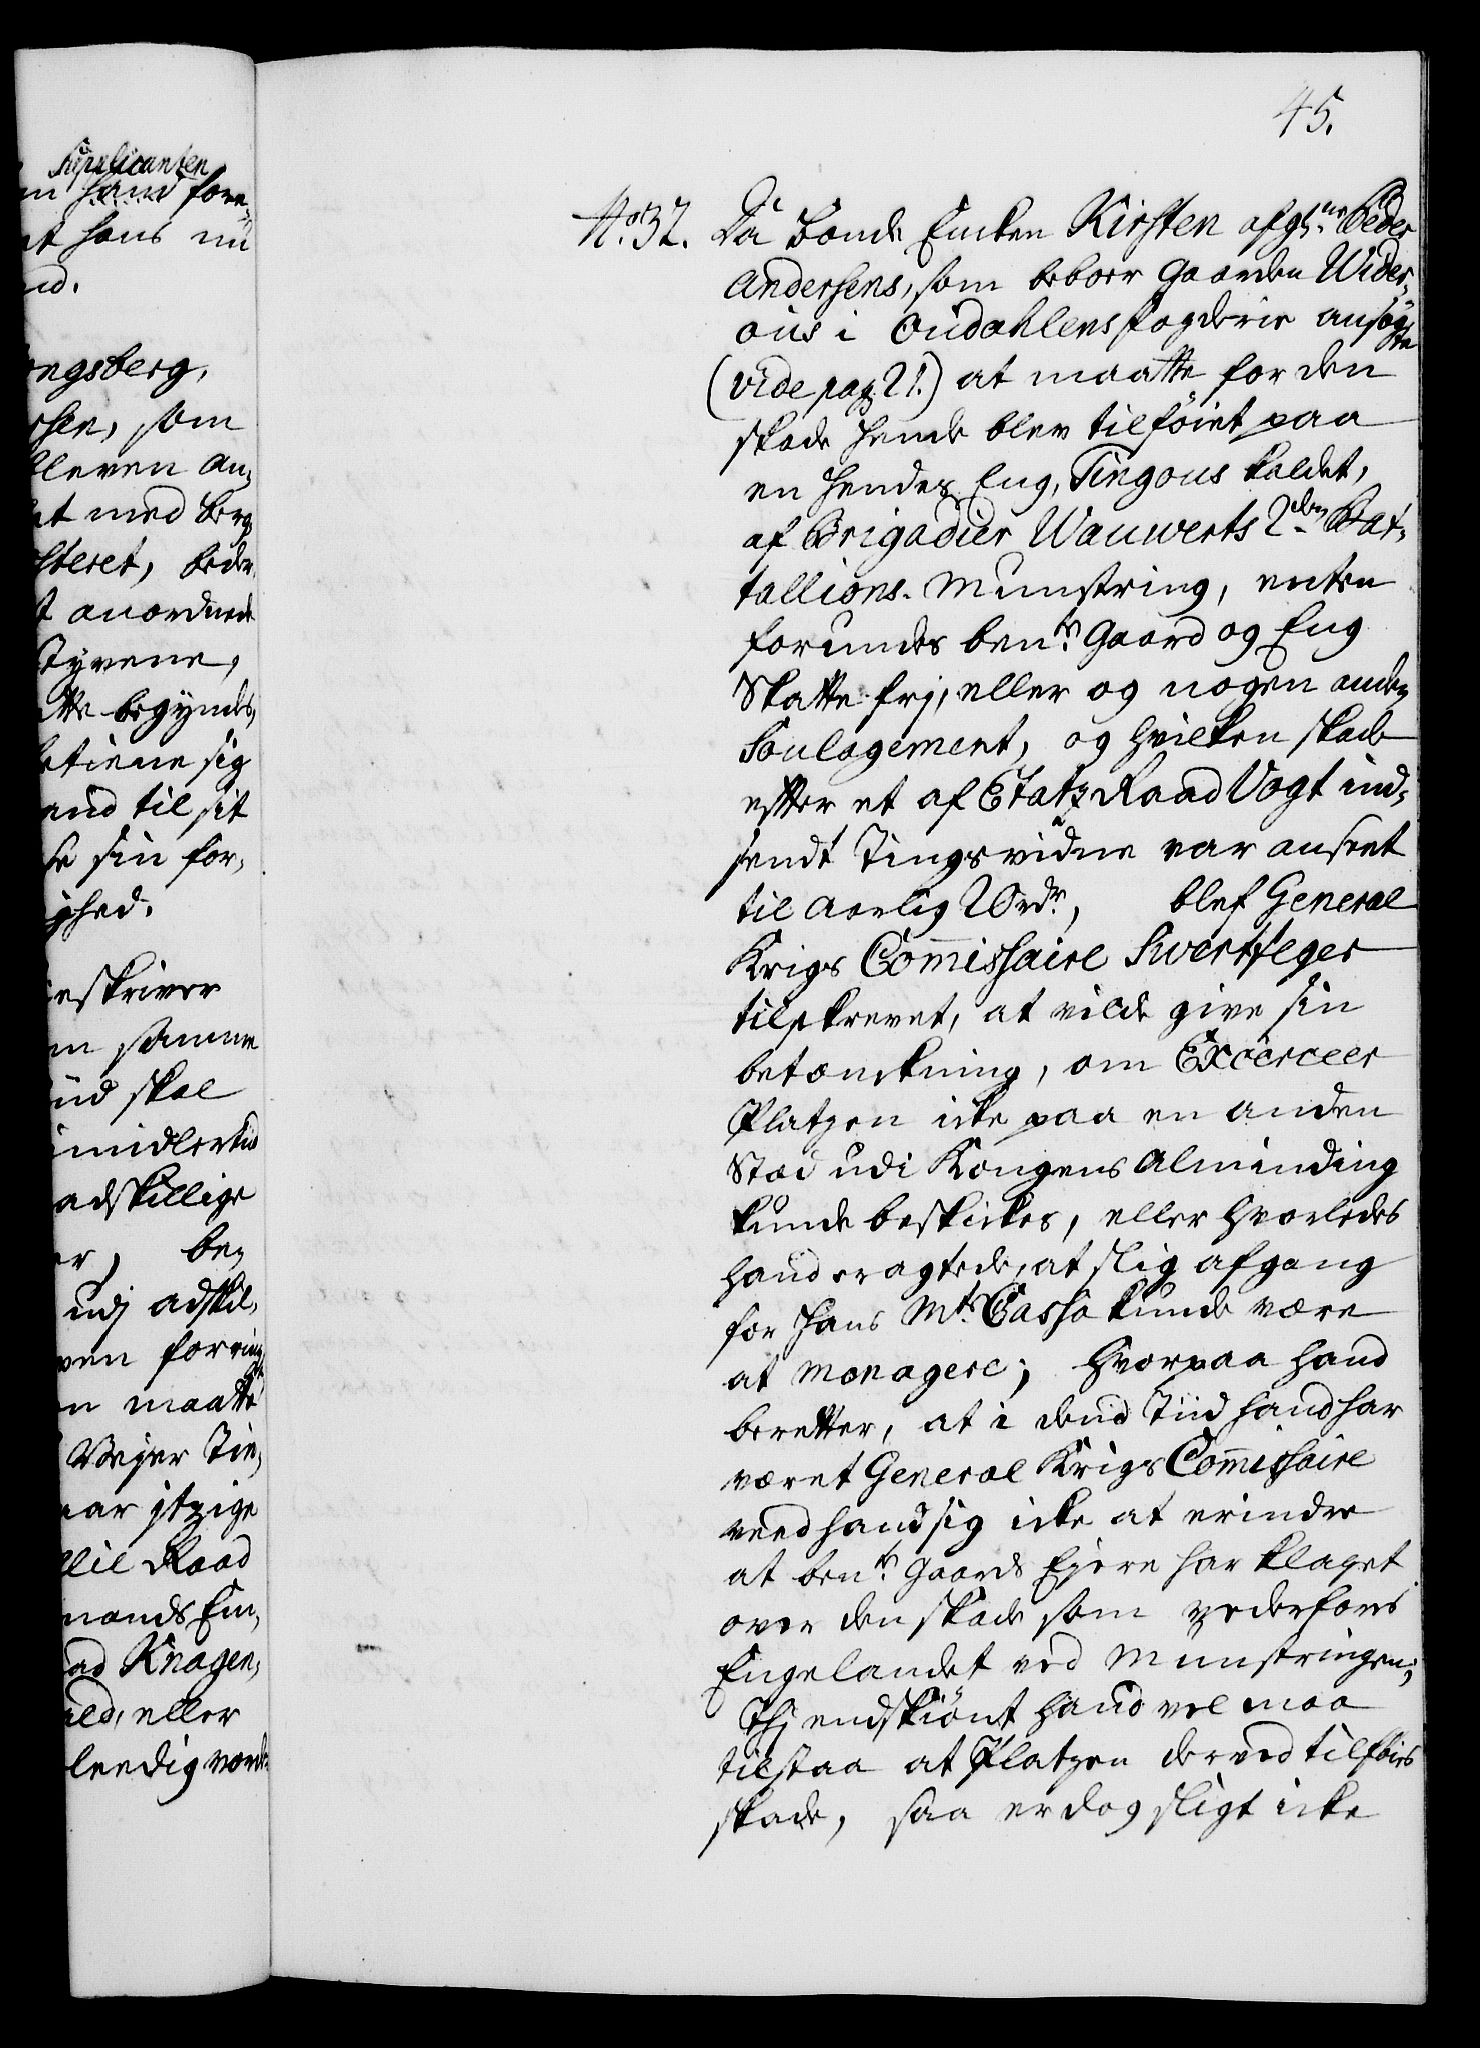 45.
Supplicanten
hand fore-
at hans nu
ongsberg,
som
bleven an-
at med berg
steret, beder
anordnede
Tyvene,
begyndes,
betiene sig
til sit
sin for-
ighed.
eskriver
samme
skal
imidlertid
adskillige
be-
udj adskil-
maatte
Vejer Tie-
itzige
Raad
mands Em-
Knagen-
eller
No. 32. Da Bonde Encken Kirsten afgl. Peder
Andersens, som beboer Gaarden Wider-
øus i Oudahlens fogderie ansøgte
(vide pag 21.) at maatte for den
skade hende blev tilføiet paa
en hendes Eng, Tingous kaldet,
af Brigadier Wauwerts 2den Bat-
tallions Munstring, enten
forundes bente Gaard og Eng
Skatte frj, eller og nogen anden
Soulagement, og hvilken skade
efter et af EtatzRaad Vogt ind-
sendt Tingsvidne var anseet
til aarlig 20rdr, blef General
Krigs Commissaire Swertfeger
tilskrevet, at vilde give sin
betænckning, om Excerceer
Platzen icke paa en anden
Stæd udi Kongens Alminding
kunde beskickes, eller hvorledes
hand eragtede, at slig afgang
for Hans Mts Cassa kunde være
at menagere; Hvorpaa hand
beretter, at i dend Tiid hand har
været General Krigs Commissaire
veed hand sig icke at erindre
at bente Gaards Ejere har klaget
over den skade som vederfores
Engelandet ved Munstringen;
Thj endskiønt hand vel maa
tilstaa at Platzen derved tilføies
skade, saa er dog sligt icke